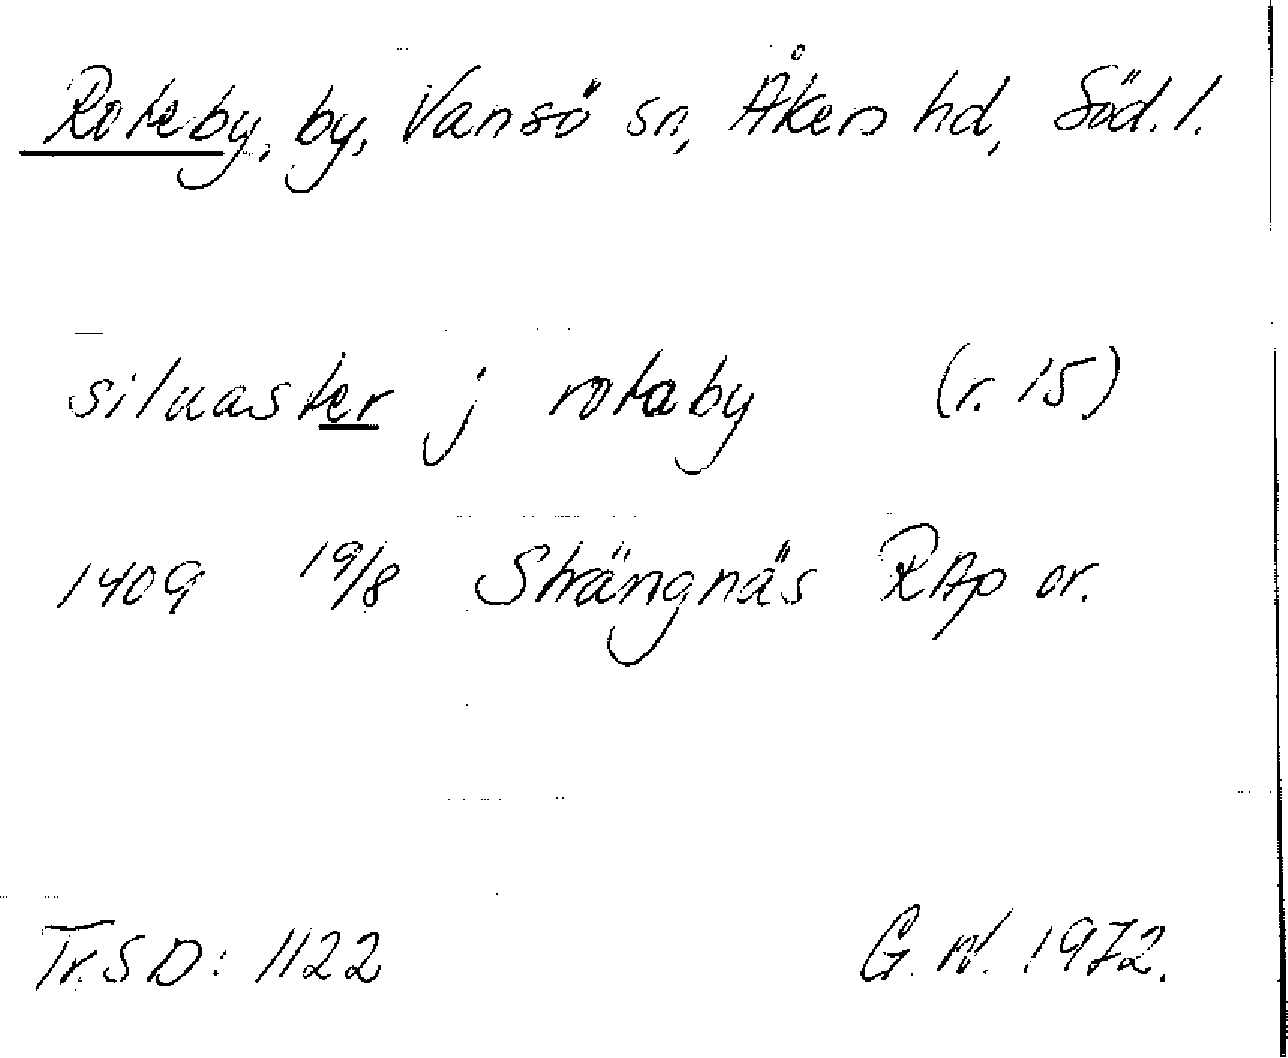 Roteby, by, Vansö sn, Åkers hd, Söd. l.
siluaster j rotaby (r. 15)
1409 19/8 Strängnäs RAp or.
Tr. SD: 1122 G. M. 1972.